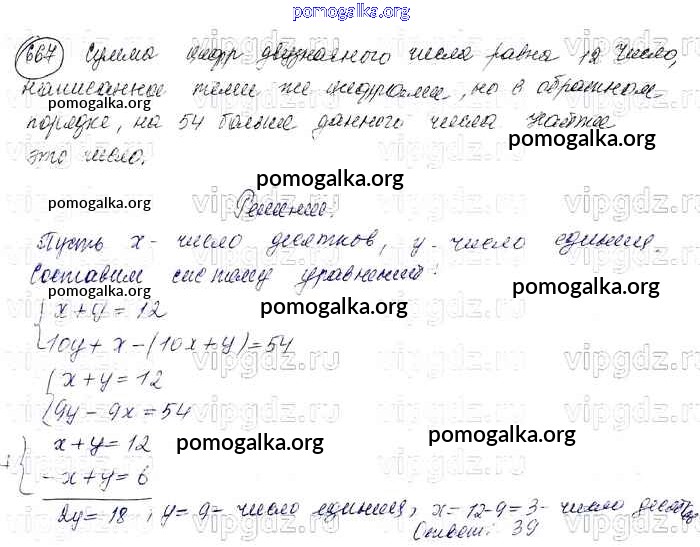 pomogalka.org
667 Сумма цифр двузначного числа равна 12 Число,
написанное теми же цифрами, но в обратном
порядке, на 54 больше данного числа Найти
это число.
Решение.
Пусть x - число десятков, y - число единиц.
Составим систему уравнений:
x + y = 12
10y + x - (10x + y) = 54
x + y = 12
9y - 9x = 54
+ x + y = 12
- x + y = 6
2y = 18; y = 9 - число единиц, x = 12 - 9 = 3 - число десятков
Ответ: 39
pomogalka.org
pomogalka.org
pomogalka.org
pomogalka.org
pomogalka.org
pomogalka.org
pomogalka.org
pomogalka.org
pomogalka.org
pomogalka.org
vipgdz.ru